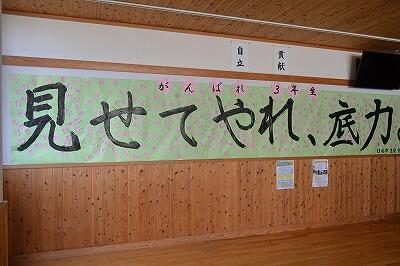 自立
貢献
がんばれ 3年生
見せてやれ、底力。